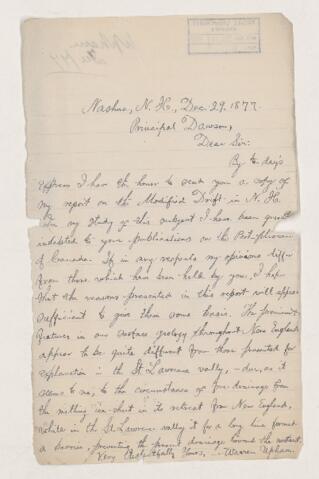 Upham
Nashua, N. H., Dec. 29, 1877.
Principal Dawson,
Dear Sir:
By to-day's
express I have the honor to send you a copy of
my report on the Modified Drift in N. H.
In my study of this subject I have been greatly
indebted to your publications on the Post-pliocene
of Canada. If in any respects my opinions differ
from those which have been held by you, I hope
that the reasons presented in this report will appear
sufficient to give them some basis. The prominent
features in our surface geology throughout New England
appear to be quite different from those presented for
explanation in the St. Lawrence valley, - due, as it
seems to me, to the circumstance of free drainage from
the melting ice-sheet in its retreat from New England,
while in the St. Lawrence valley it for a long time formed
a barrier, preventing the present drainage toward the northeast.
Very Respectfully Yours, - Warren Upham.